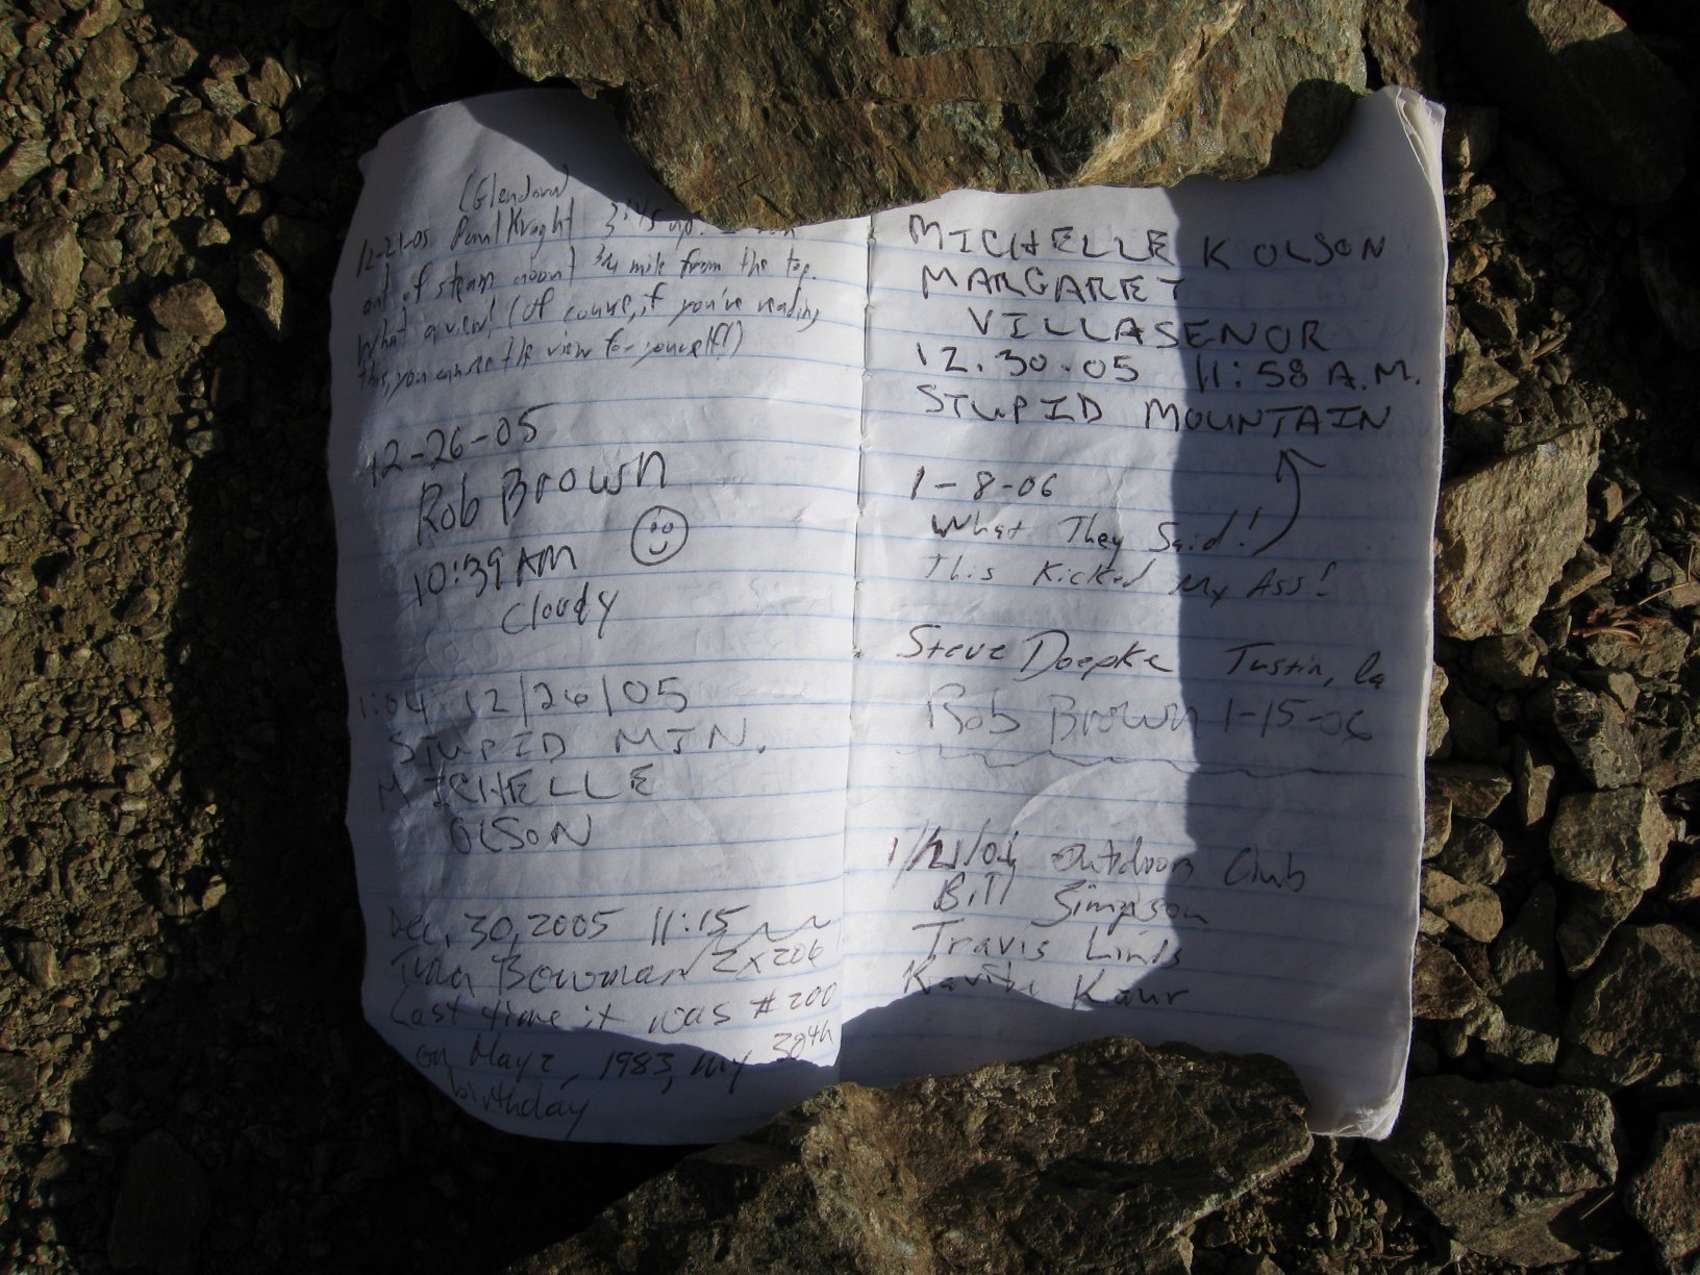 (Glendora)
12-21-05 Paul Kraght 3:45 up.
out of steam about 3/4 mile from the top.
What a view! (Of course, if you're reading
this, you can see the view for yourself!)
12-26-05
Rob Brown
10:39 AM
Cloudy
1:04 12/26/05
STUPID MTN.
MICHELLE
OLSON
Dec, 30, 2005 11:15
Bowman
Last time it was #200
on May 2, 1983, my 38th
birthday
MICHELLE K OLSON
MARGARET
VILLASENOR
12.30.05 11:58 A.M.
STUPID MOUNTAIN
1-8-06
What They Said!
This Kicked My Ass!
Steve Doepke Tustin, Ca
Rob Brown 1-15-06
Outdoors Club
Bill Simpson
Travis Linds
Kaur